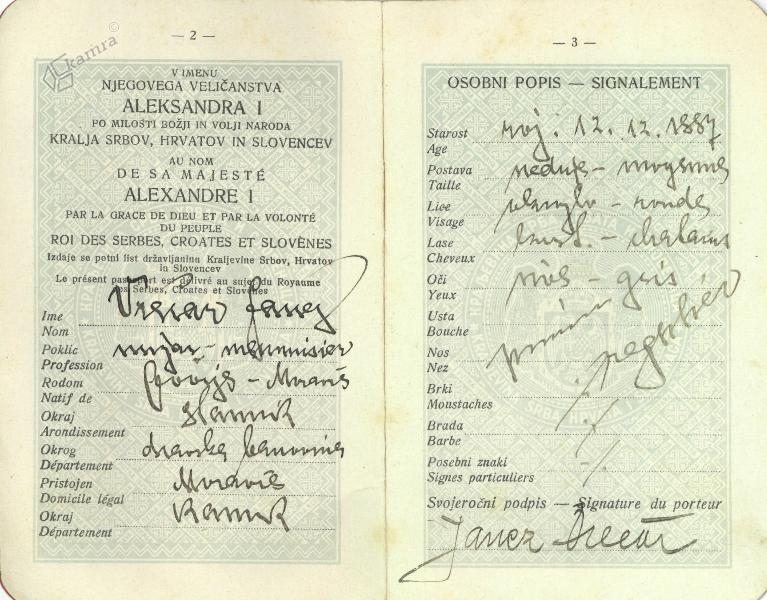 — 2 —
kamra ©
V IMENU
NJEGOVEGA VELIČANSTVA
ALEKSANDRA I
PO MILOSTI BOŽJI IN VOLJI NARODA
KRALJA SRBOV, HRVATOV IN SLOVENCEV
AU NOM
DE SA MAJESTÉ
ALEXANDRE I
PAR LA GRACE DE DIEU ET PAR LA VOLONTÉ
DU PEUPLE
ROI DES SERBES, CROATES ET SLOVÈNES
Izdaje se potni list državljaninu Kraljevine Srbov, Hrvatov
in Slovencev
Le présent passeport est délivré au sujet du Royaume
des Serbes, Croates et Slovènes
Ime Janez
Nom
Poklic
Profession
Rodom Moravče
Natif de
Okraj Kamnik
Arondissement
Okrog dravska banovina
Département
Pristojen Moravče
Domicile légal
Okraj Kamnik
Département
— 3 —
OSOBNI POPIS — SIGNALEMENT
Starost roj. 12. 12. 1887
Age
Postava
Taille
Lice - ronde
Visage
Lase kost. - chatains
Cheveux
Oči - gris
Yeux
Usta
Bouche
Nos
Nez
Brki
Moustaches
Brada
Barbe
Posebni znaki
Signes particuliers
Svojeročni podpis — Signature du porteur
Janez